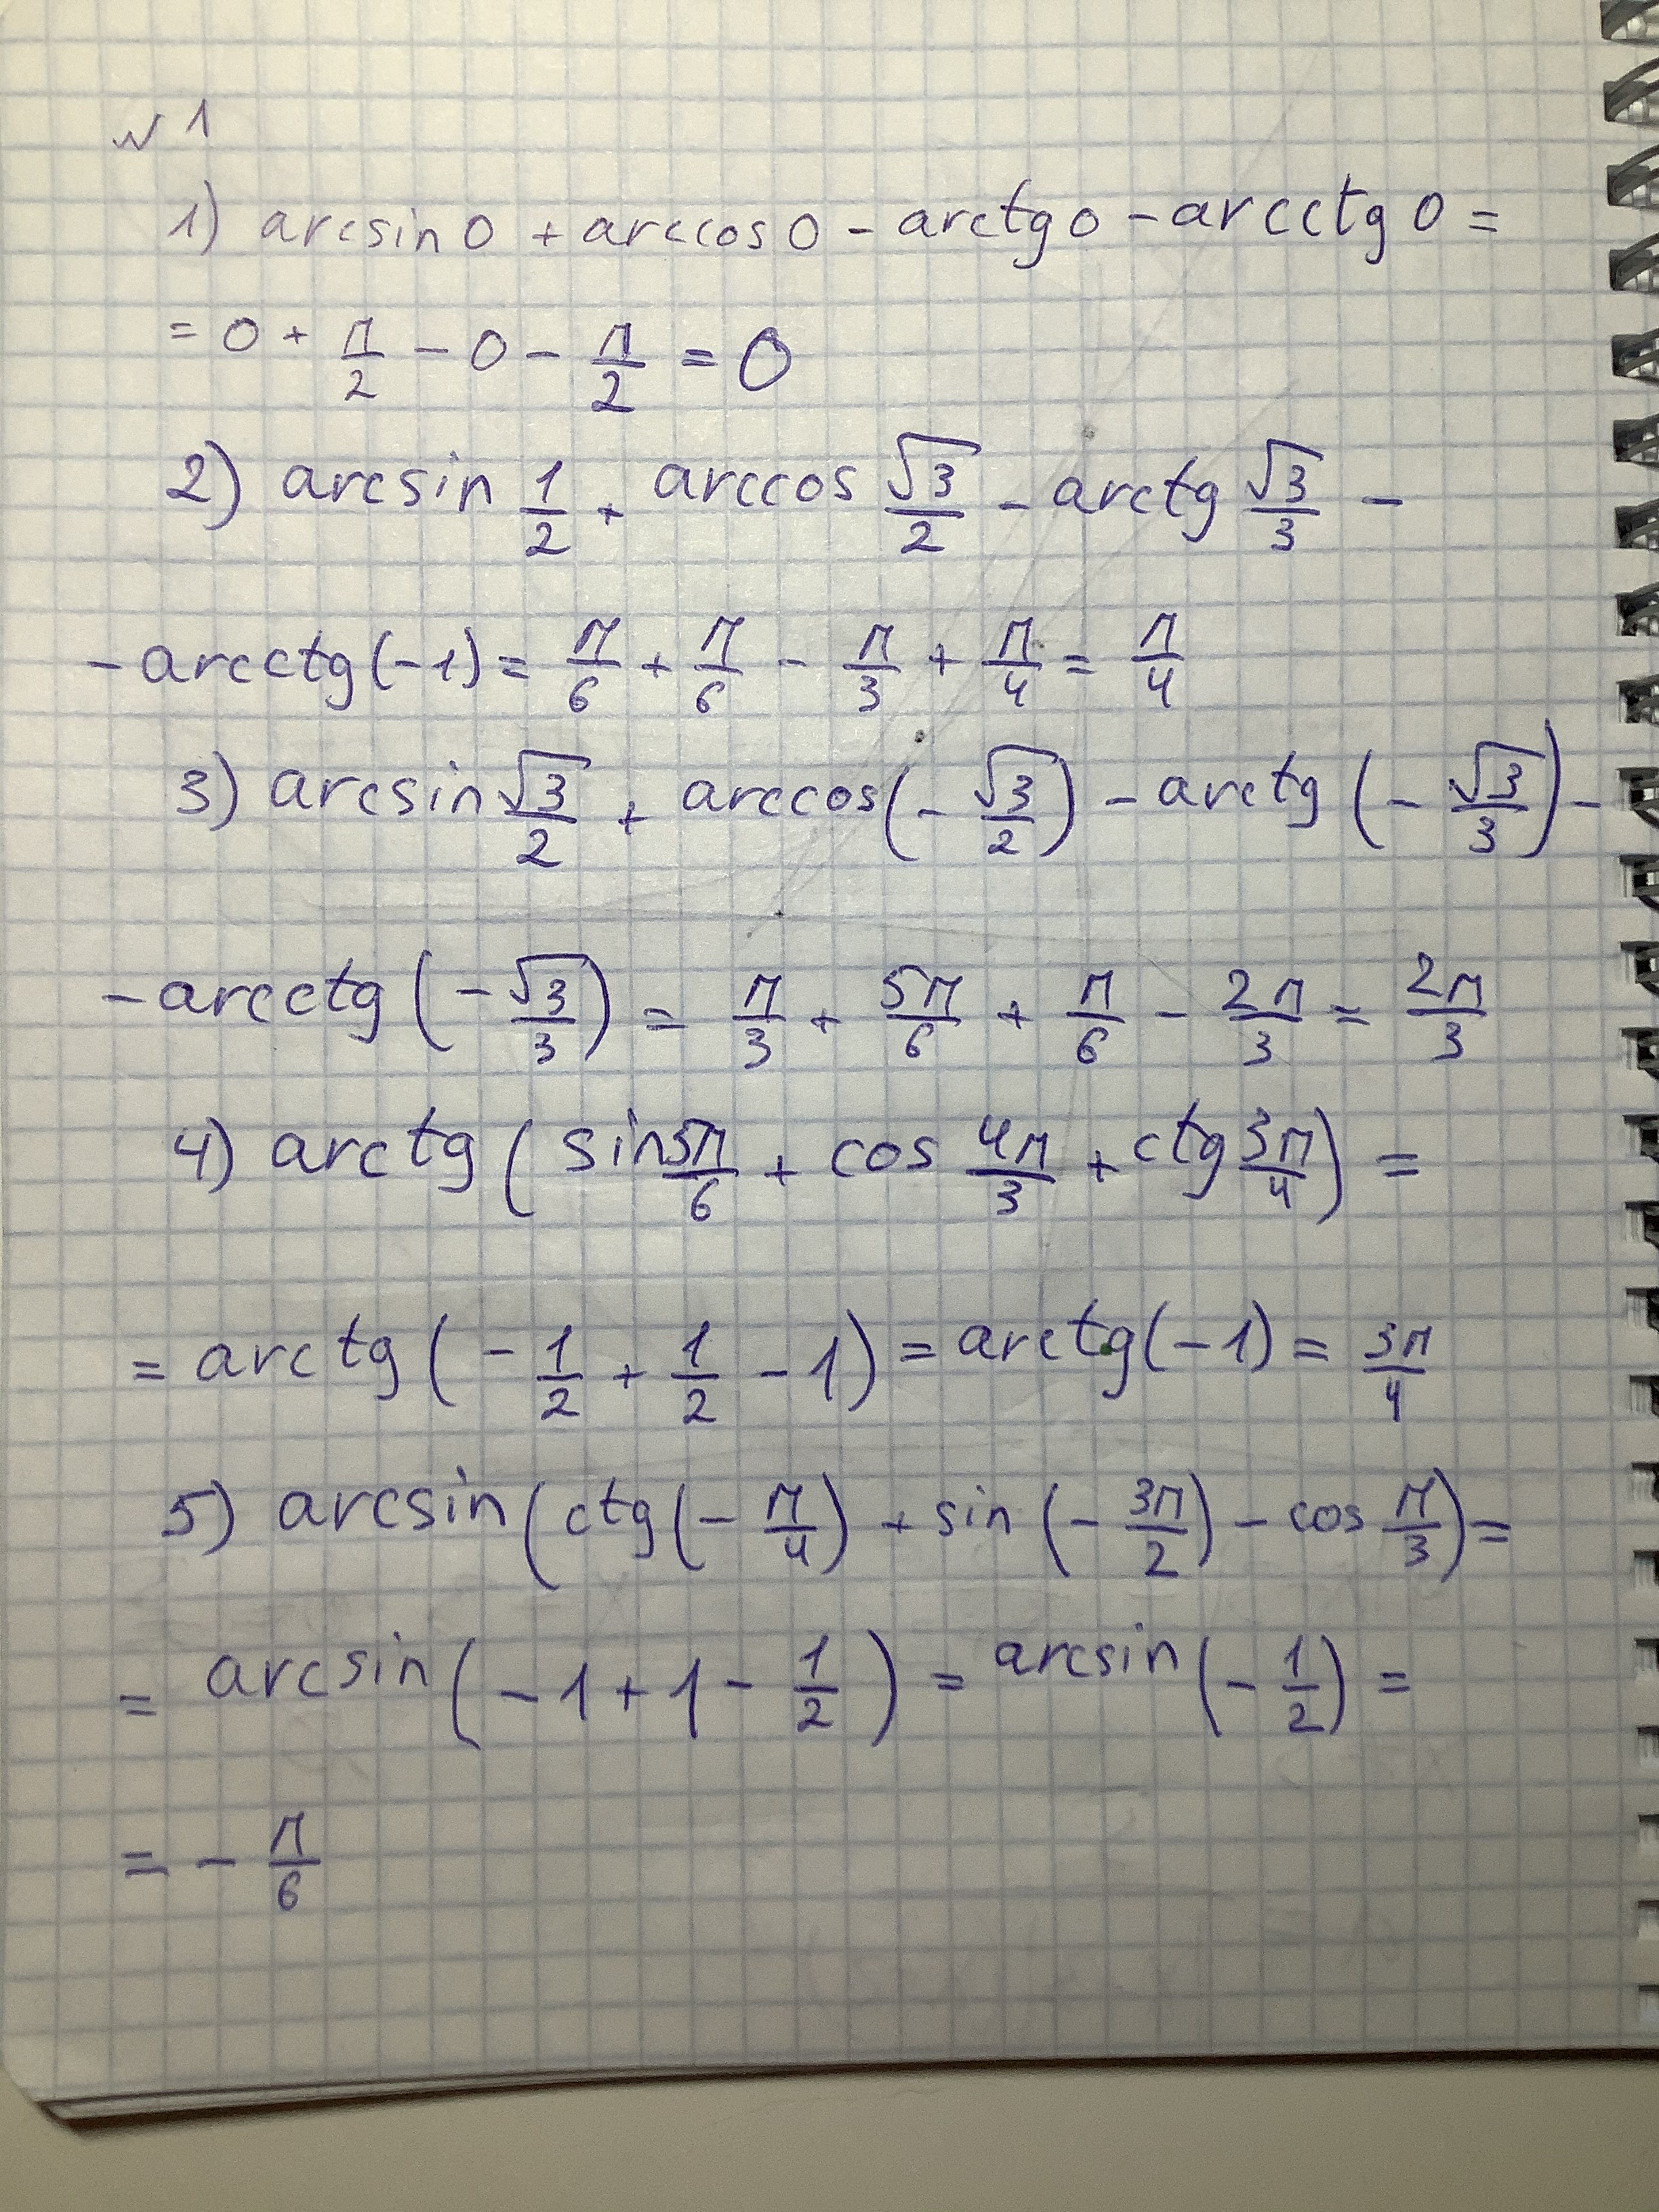 № 1
1) arcsin 0 + arccos 0 - arctg 0 - arcctg 0 =
= 0 + π/2 - 0 - π/2 = 0
2) arcsin 1/2 + arccos √3/2 - arctg √3/3 -
- arcctg(-1) = π/6 + π/6 - π/3 + π/4 = π/4
3) arcsin √3/2 + arccos(-√3/2) - arctg(-√3/3) -
- arcctg(-√3/3) = π/3 + 5π/6 + π/6 - 2π/3 = 2π/3
4) arctg(sin 5π/6 + cos 4π/3 + ctg 3π/4) =
= arctg(-1/2 + 1/2 - 1) = arctg(-1) = 3π/4
5) arcsin(ctg(-π/4) + sin(-3π/2) - cos π/3) =
= arcsin(-1 + 1 - 1/2) = arcsin(-1/2) =
= - π/6